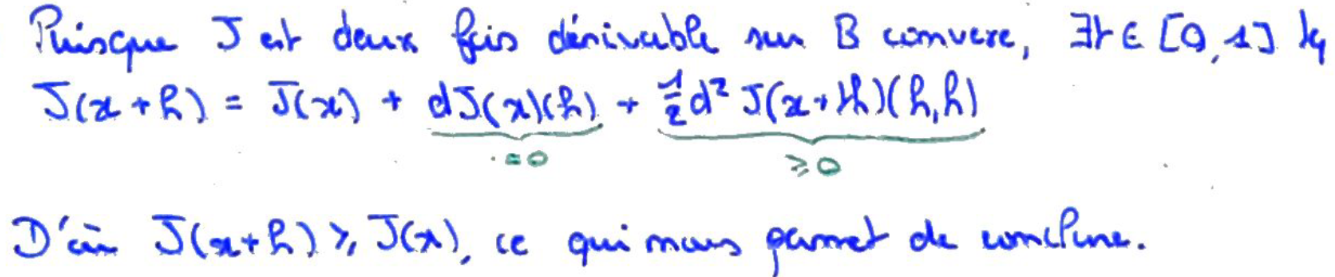 Puisque J est deux fois dérivable sur B convexe, ∃t ∈ [0,1] tq
J(x+h) = J(x) + dJ(x)(h) + ½d² J(x+th)(h,h)
=0 ≥0
D'où J(x+h) ≥ J(x), ce qui nous permet de conclure.